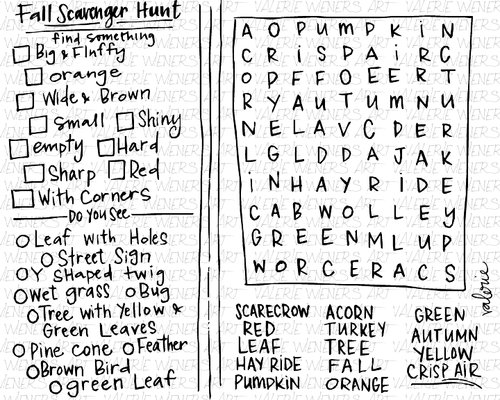 Fall Scavenger Hunt
find something
Big & Fluffy
orange
Wide & Brown
Small Shiny
empty Hard
Sharp Red
With Corners
Do You See
Leaf with Holes
Street Sign
Y Shaped twig
Wet grass Bug
Tree with Yellow &
Green Leaves
Pine cone Feather
Brown Bird
green Leaf
A O P U M P K I N
C R I S P A I R C
O P F F O E E R T
R Y A U T U M N U
N E L A V C D E R
L G L D D A J A K
I N H A Y R I D E
C A B W O L L E Y
G R E E N M L U P
W O R C E R A C S
valerie
SCARECROW ACORN GREEN
RED TURKEY AUTUMN
LEAF TREE YELLOW
HAY RIDE FALL CRISP AIR
PUMPKIN ORANGE
VALERIE WENERS ART